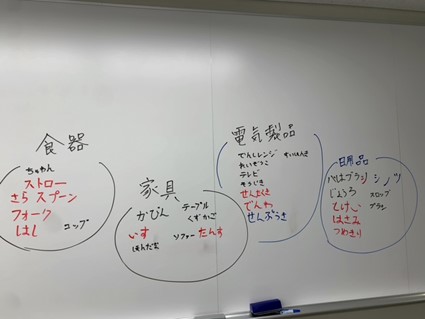 食器
ちゃわん
ストロー
さら スプーン
フォーク
はし コップ
家具
かびん テーブル
くずかご
いす ソファー たんす
ほんだな
電気製品
でんしレンジ すいはんき
れいぞうこ
テレビ
そうじき
せんたくき
でんわ
せんぷうき
日用品
はブラシ シーツ
じょうろ スリップ
とけい ブラシ
はさみ
つめきり